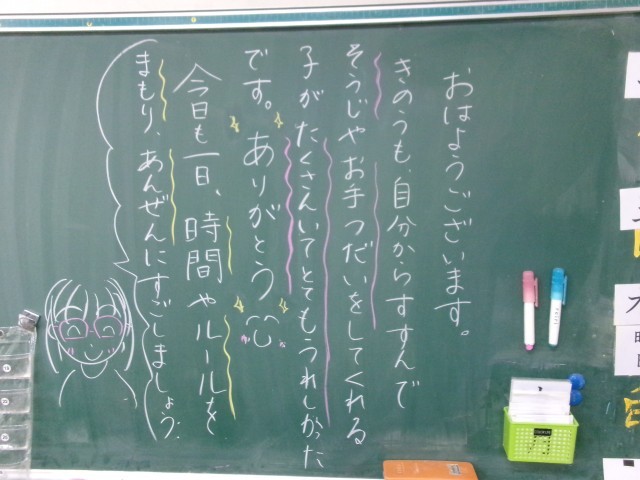 おはようございます。
きのうも、自分からすすんで
そうじやお手つだいをしてくれる
子がたくさんいてとてもうれしかった
です。ありがとう
今日も一日、時間やルールを
まもり、あんぜんにすごしましょう。